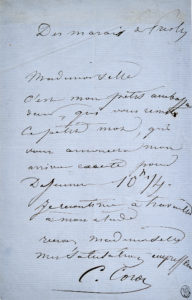 Des marais de
Mademoiselle
C'est mon petit ambassa
deur, que vous rem
ce petit mot, qui
vous annoncera mon
arrivée exacte pour
Dejeuner 10 h ¼.
Je continue à travailler
à mon étude
Mademoiselle
mes salutations empressées
C. Corot